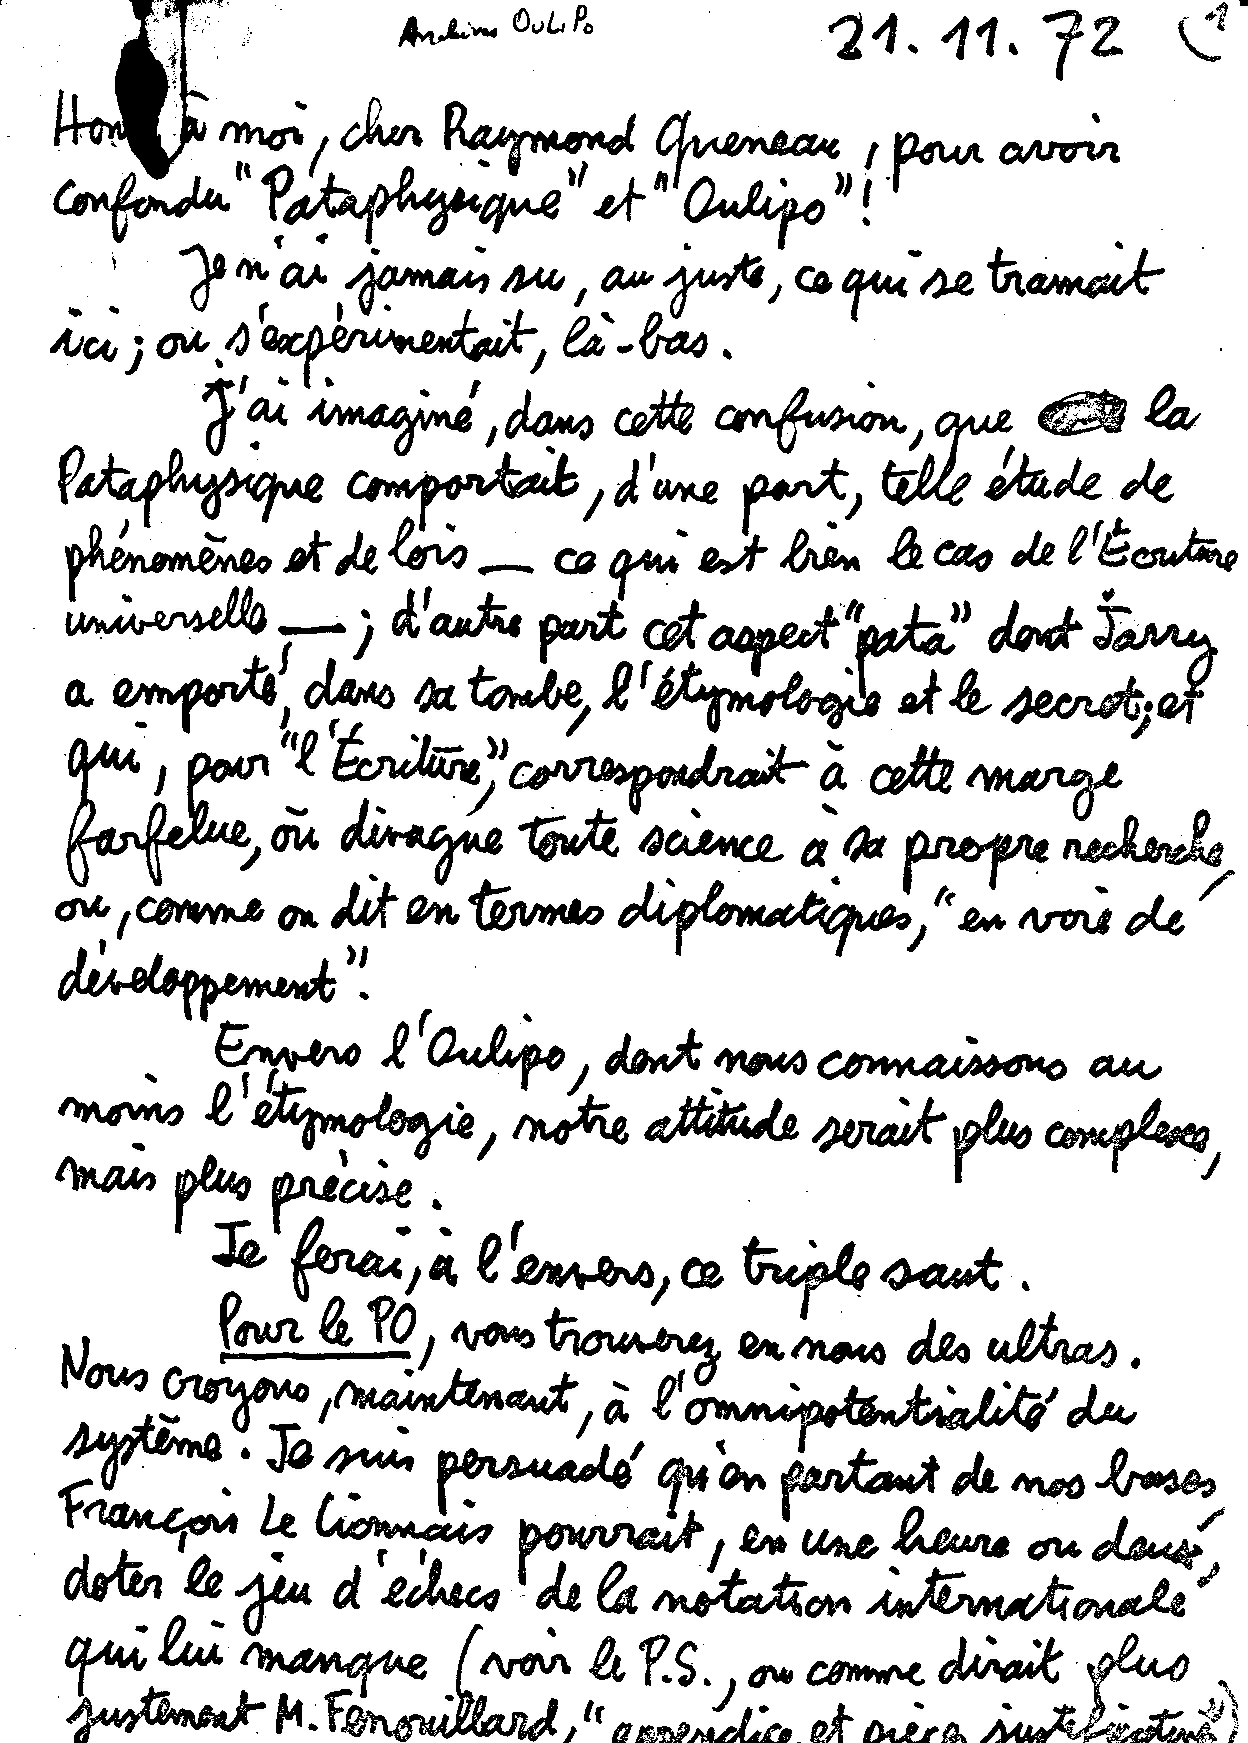 Archives OULIPO
21.11.72 (1
Honte à moi, cher Raymond Queneau, pour avoir
confondu "Pataphysique" et "Oulipo"!
Je n'ai jamais su, au juste, ce qui se tramait
ici ; ou s'expérimentait, là-bas.
J'ai imaginé, dans cette confusion, que la
Pataphysique comportait, d'une part, telle étude de
phénomènes et de lois — ce qui est bien le cas de l'Écriture
universelle — ; d'autre part cet aspect "pata" dont Jarry
a emporté, dans sa tombe, l'étymologie et le secret; et
qui, pour "l'Écriture", correspondrait à cette marge
farfelue, où divague toute science à sa propre recherche,
ou, comme on dit en termes diplomatiques, "en voie de
développement".
Envers l'Oulipo, dont nous connaissons au
moins l'étymologie, notre attitude serait plus complexe,
mais plus précise.
Je ferai, à l'envers, ce triple saut.
Pour le PO, vous trouverez en nous des ultras.
Nous croyons, maintenant, à l'omnipotentialité du
système. Je suis persuadé qu'en partant de nos bases,
François Le Lionnais pourrait, en une heure ou deux,
doter le jeu d'échecs de la notation internationale
qui lui manque (voir le P.S., ou comme dirait plus
justement M. Fenouillard, "appendice et pièce justificative")